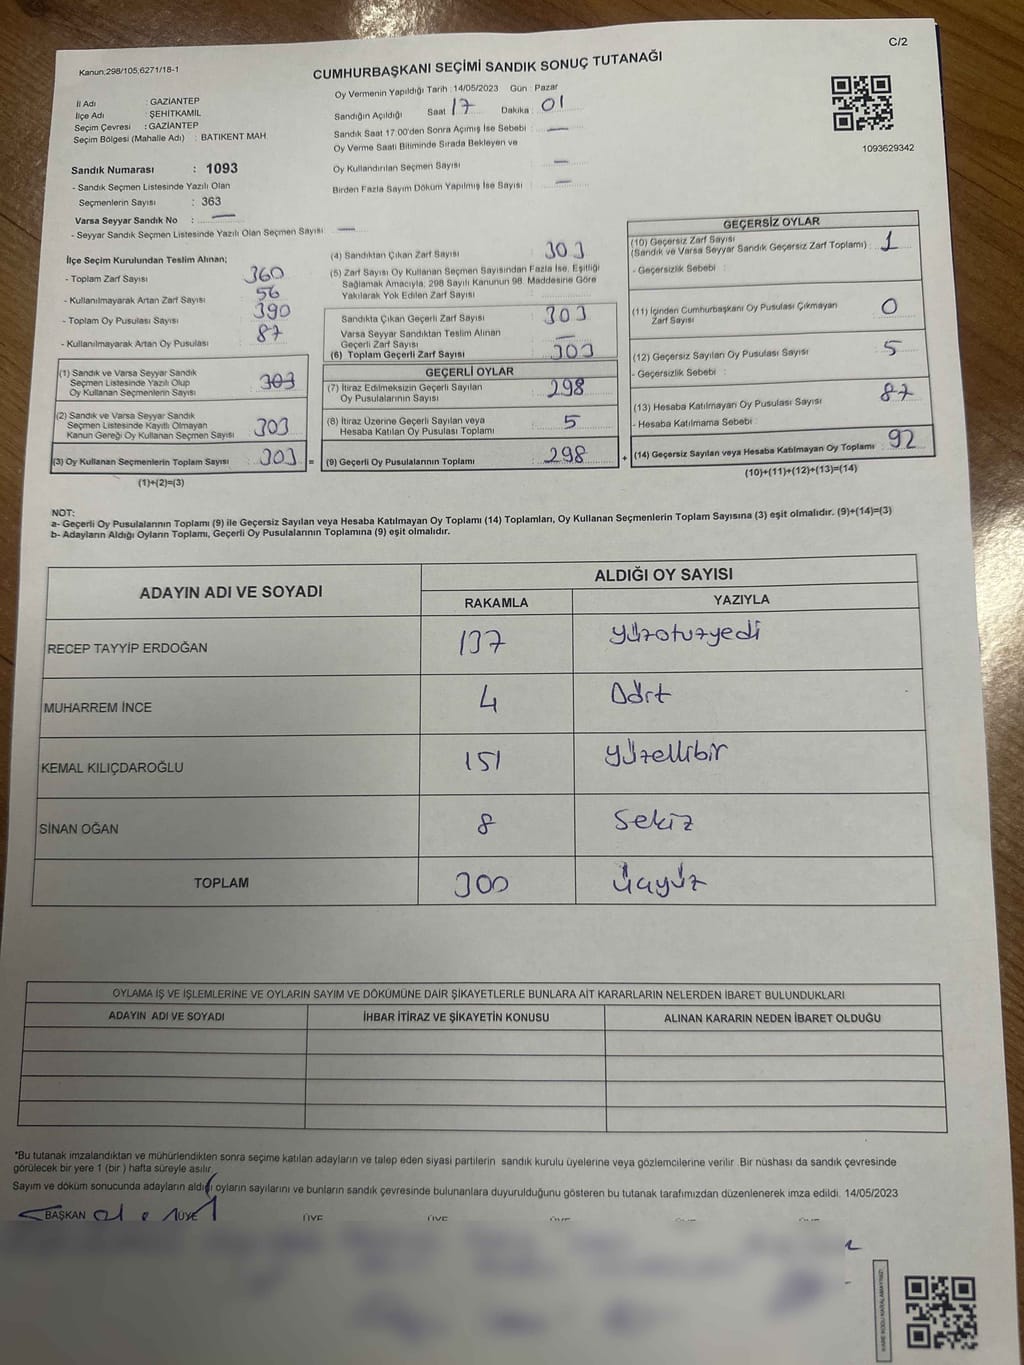 C/2
Kanun;298/105,6271/18-1
CUMHURBAŞKANI SEÇİMİ SANDIK SONUÇ TUTANAĞI
İl Adı : GAZİANTEP
İlçe Adı : ŞEHİTKAMİL
Seçim Çevresi : GAZİANTEP
Seçim Bölgesi (Mahalle Adı) : BATIKENT MAH
Oy Vermenin Yapıldığı Tarih : 14/05/2023 Gün : Pazar
Sandığın Açıldığı Saat 17 Dakika 01
Sandık Saat 17:00'den Sonra Açımış İse Sebebi : —
Oy Verme Saati Bitiminde Sırada Bekleyen ve
Oy Kullandırılan Seçmen Sayısı —
Birden Fazla Sayım Döküm Yapılmış İse Sayısı —
1093629342
Sandık Numarası : 1093
- Sandık Seçmen Listesinde Yazılı Olan
Seçmenlerin Sayısı : 363
Varsa Seyyar Sandık No : —
- Seyyar Sandık Seçmen Listesinde Yazılı Olan Seçmen Sayısı : —
İlçe Seçim Kurulundan Teslim Alınan;
- Toplam Zarf Sayısı 360
- Kullanılmayarak Artan Zarf Sayısı 56
- Toplam Oy Pusulası Sayısı 390
- Kullanılmayarak Artan Oy Pusulası 87
(1) Sandık ve Varsa Seyyar Sandık
Seçmen Listesinde Yazılı Olup
Oy Kullanan Seçmenlerin Sayısı 303
(2) Sandık ve Varsa Seyyar Sandık
Seçmen Listesinde Kayıtlı Olmayan
Kanun Gereği Oy Kullanan Seçmen Sayısı 303
(3) Oy Kullanan Seçmenlerin Toplam Sayısı 303 =
(1)+(2)=(3)
(4) Sandıktan Çıkan Zarf Sayısı 303
(5) Zarf Sayısı Oy Kullanan Seçmen Sayısından Fazla İse, Eşitliği
Sağlamak Amacıyla, 298 Sayılı Kanunun 98. Maddesine Göre
Yakılarak Yok Edilen Zarf Sayısı
Sandıkta Çıkan Geçerli Zarf Sayısı 303
Varsa Seyyar Sandıktan Teslim Alınan
Geçerli Zarf Sayısı —
(6) Toplam Geçerli Zarf Sayısı 303
GEÇERLİ OYLAR
(7) İtiraz Edilmeksizin Geçerli Sayılan
Oy Pusulalarının Sayısı 298
(8) İtiraz Üzerine Geçerli Sayılan veya
Hesaba Katılan Oy Pusulası Toplamı 5
(9) Geçerli Oy Pusulalarının Toplamı 298 +
GEÇERSİZ OYLAR
(10) Geçersiz Zarf Sayısı
(Sandık ve Varsa Seyyar Sandık Geçersiz Zarf Toplamı) : 1
- Geçersizlik Sebebi :
(11) İçinden Cumhurbaşkanı Oy Pusulası Çıkmayan
Zarf Sayısı 0
(12) Geçersiz Sayılan Oy Pusulası Sayısı 5
- Geçersizlik Sebebi :
(13) Hesaba Katılmayan Oy Pusulası Sayısı 87
- Hesaba Katılmama Sebebi :
(14) Geçersiz Sayılan veya Hesaba Katılmayan Oy Toplamı 92
(10)+(11)+(12)+(13)=(14)
NOT:
a- Geçerli Oy Pusulalarının Toplamı (9) ile Geçersiz Sayılan veya Hesaba Katılmayan Oy Toplamı (14) Toplamları, Oy Kullanan Seçmenlerin Toplam Sayısına (3) eşit olmalıdır. (9)+(14)=(3)
b- Adayların Aldığı Oyların Toplamı, Geçerli Oy Pusulalarının Toplamına (9) eşit olmalıdır.
ADAYIN ADI VE SOYADI ALDIĞI OY SAYISI
RAKAMLA YAZIYLA
RECEP TAYYİP ERDOĞAN 137 yüzotuzyedi
MUHARREM İNCE 4 Dört
KEMAL KILIÇDAROĞLU 151 yüzellibir
SİNAN OĞAN 8 Sekiz
TOPLAM 300 üçyüz
OYLAMA İŞ VE İŞLEMLERİNE VE OYLARIN SAYIM VE DÖKÜMÜNE DAİR ŞİKAYETLERLE BUNLARA AİT KARARLARIN NELERDEN İBARET BULUNDUKLARI
ADAYIN ADI VE SOYADI İHBAR İTİRAZ VE ŞİKAYETİN KONUSU ALINAN KARARIN NEDEN İBARET OLDUĞU
*Bu tutanak imzalandıktan ve mühürlendikten sonra seçime katılan adayların ve talep eden siyasi partilerin sandık kurulu üyelerine veya gözlemcilerine verilir. Bir nüshası da sandık çevresinde
görülecek bir yere 1 (bir ) hafta süreyle asılır.
Sayım ve döküm sonucunda adayların aldığı oyların sayılarını ve bunların sandık çevresinde bulunanlara duyurulduğunu gösteren bu tutanak tarafımızdan düzenlenerek imza edildi. 14/05/2023
BAŞKAN ÜYE ÜYE ÜYE